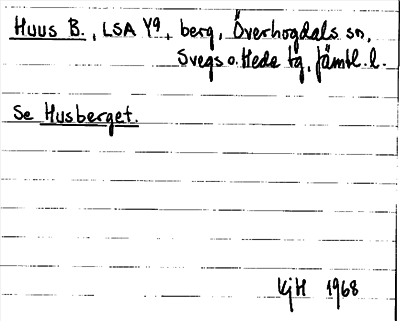 Huus B., LSA Y9, berg, Överhogdals sn,
Svegs o. Hede tg, Jämtl. l.
Se Husberget.
KjH 1968